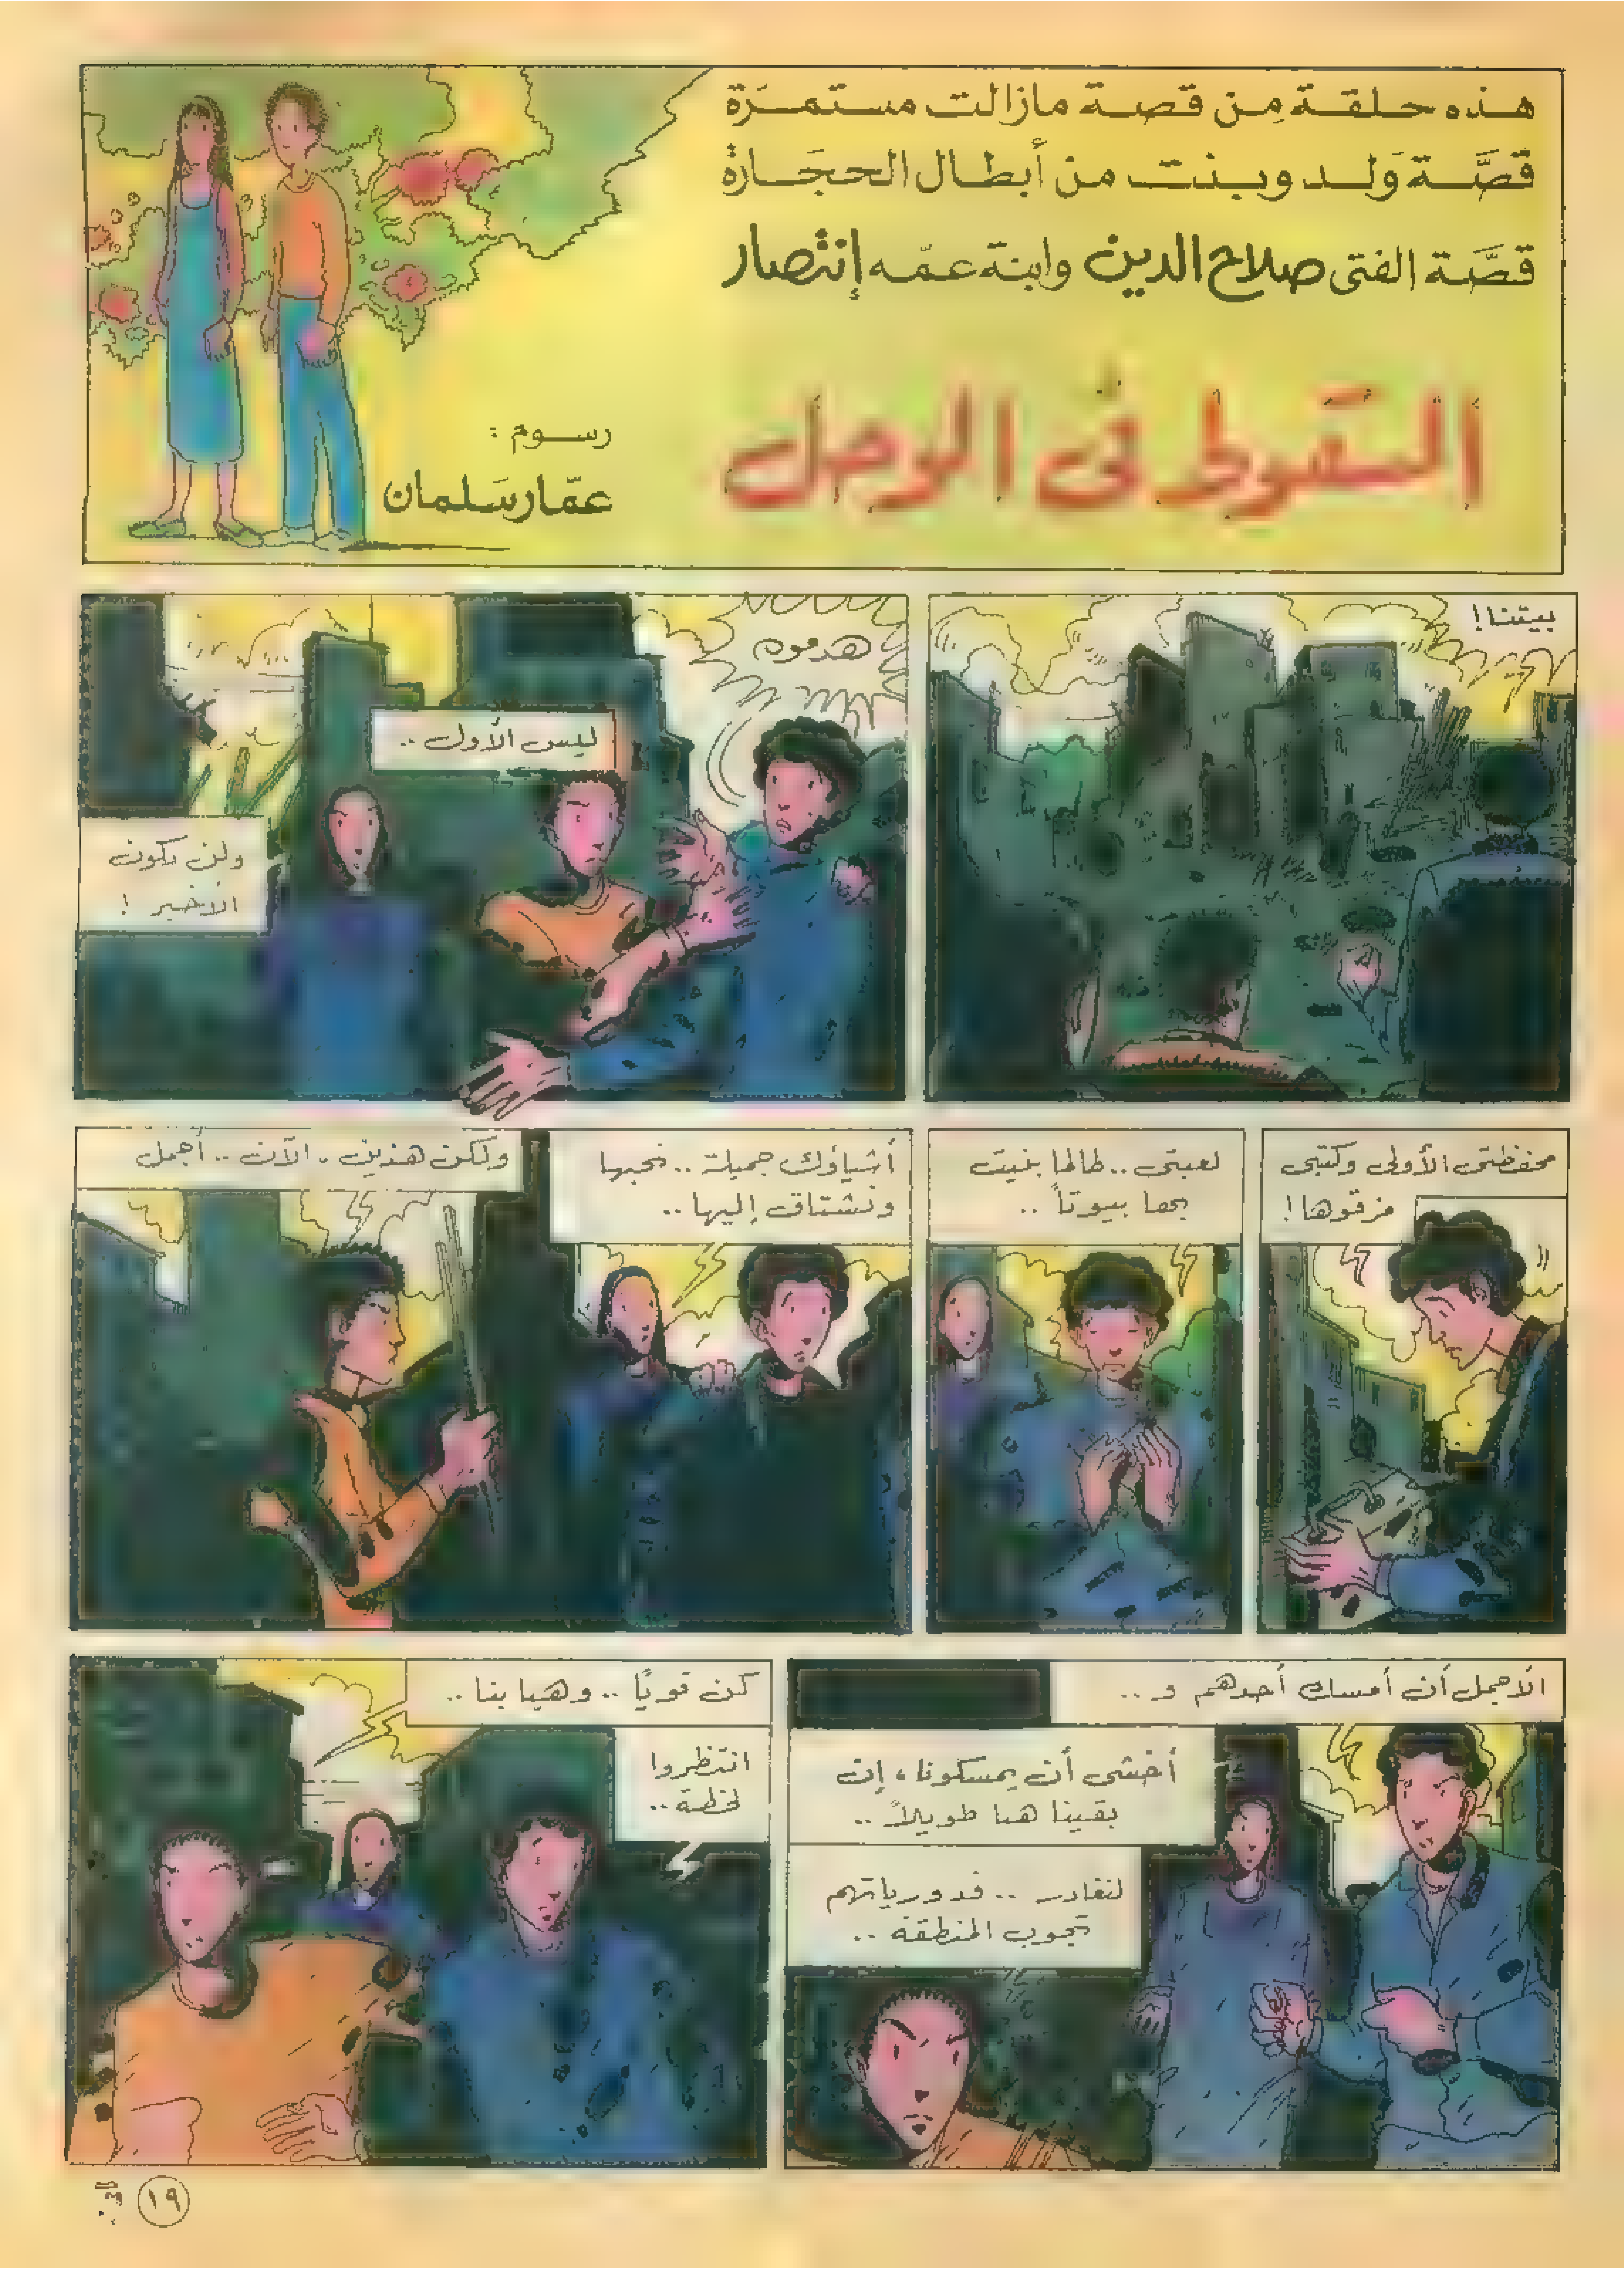 هذه حلقة من قصة مازالت مستمرّة
قصَّة وَلد وبنت من أبطال الحجَارة
قصَّة الفتى صلاح الدين وابنة عمّه إنتصار
السقوط في الوحل
رسوم :
عمّار سَلمان
بيتنا!
هدموه
ليس الأول ..
ولن يكون
الأخير !
محفظتي الأولى وكتبي
مزقوها!
لعبتي .. طالما بنيت
بها بيوتاً ..
أشياؤك جميلة .. نحبها
ونشتاق إليها ..
ولكن هذين . الآن .. أجمل
الأجمل أن أمسك أحدهم و ..
أخشى أن يمسكونا ، إن
بقينا هنا طويلاً ..
لنغادر .. فدورياتهم
تجوب المنطقة ..
كن قوياً .. وهيا بنا ..
انتظروا
لحظة ..
١٩